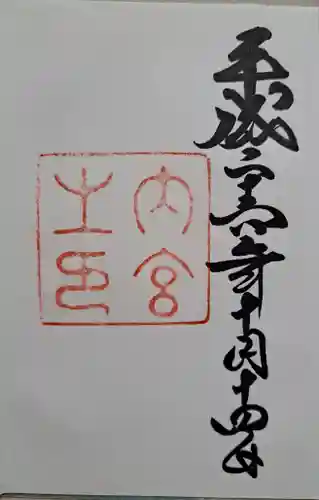 平成二十六年十月十四日
内宮
之印